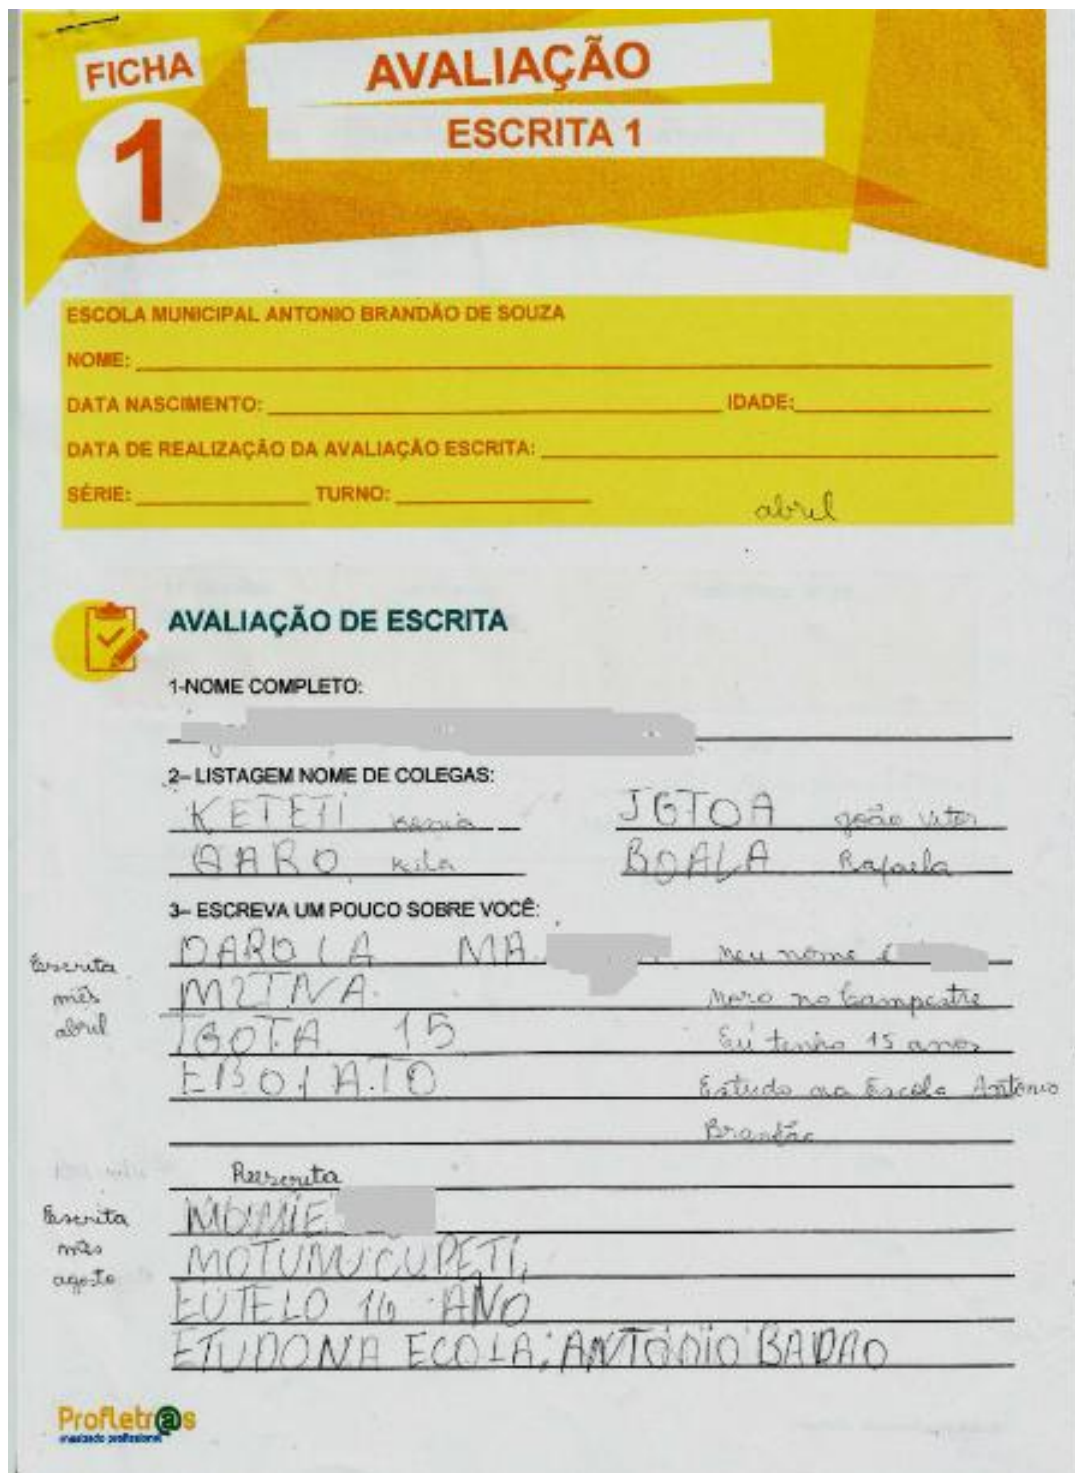 FICHA
1
AVALIAÇÃO
ESCRITA 1
ESCOLA MUNICIPAL ANTONIO BRANDÃO DE SOUZA
NOME:
DATA NASCIMENTO: IDADE:
DATA DE REALIZAÇÃO DA AVALIAÇÃO ESCRITA:
SÉRIE: TURNO:
abril
AVALIAÇÃO DE ESCRITA
1-NOME COMPLETO:
2– LISTAGEM NOME DE COLEGAS:
KETETI Kenia JGTOA joão vitor
AARO Kila BOALA Rafaela
3– ESCREVA UM POUCO SOBRE VOCÊ:
Escrita mês abril
DAROLA MA Meu nome é
M2TNA. Moro no Campestre
TGOTA 15 Eu tenho 15 anos
EBOIATO Estudo na Escola Antonio
Brandão
Reescrita
Escrita mês agosto
MOTUNUCUPETI,
EUTELO 16 ANO
ETUDONA ECOLA; ANTÓNIO BADAO
Profletr@s
mestrado profissional